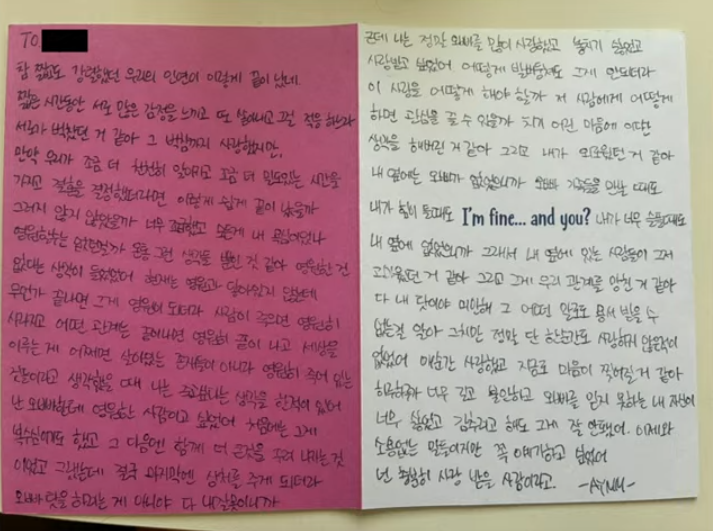 TO
참 짧고도 강렬했던 우리의 인연이 이렇게 끝이 났네
짧은 시간동안 서로 많은 감정을 느끼고 또 쏟아내고 그걸 적응 하느라
서로가 벅찼던 거 같아 그 벅참까지 사랑했지만,
만약 우리가 조금 더 천천히 알아가고 조금 더 밀도있는 시간을
가지고 결혼을 결정했더라면 이렇게 쉽게 끝이 났을까
그러지 않지 않았을까 너무 조급했고 모든게 내 욕심이었나
영원이라는 없는걸까 온통 그런 생각을 했던 것 같아 영원한 건
없다는 생각이 들었었어 현재는 영원과 닿아있지 않는데
무언가 끝나면 그게 영원이 되더라 사람이 죽으면 영원히
사라지고 어떤 관계는 끝이나면 영원히 끝이 나고 세상을
이루는 게 어쩌면 살아있는 존재들이 아니라 영원히 죽어 있는
것들이라고 생각했을 때 나는 죽고싶다는 생각을 한적이 있어
난 오빠한테 영원한 사람이고 싶었어 처음에는 그게
복수심이기도 했고 그 다음엔 함께 더 큰것을 꾸려 나가는 것
이었고 그랬는데 결국 마지막엔 상처를 주게 되더라
오빠 탓을 하려는 게 아니야 다 내잘못이니까
근데 나는 정말 오빠를 많이 사랑했고 놓치기 싫었고
사랑받고 싶었어 어떻게 발버둥쳐도 그게 안되더라
이 사람을 어떻게 해야 할까 저 사람에게 어떻게
하면 관심을 끌 수 있을까 치기 어린 마음에 이런
생각을 해버린 거 같아 그리고 내가 외로웠던 거 같아
내 옆에는 오빠가 없었으니까 오빠 가족들을 만날 때에도
내가 힘이 들때도 I'm fine... and you? 내가 너무 슬플때도
내 옆에 없었으니까 그래서 내 옆에 있는 사람들이 그저
고마웠던 거 같아 그리고 그게 우리 관계를 망친 거 같아
다 내 탓이야 미안해 그 어떤 말로도 용서 받을 수
없는걸 알아 그치만 정말 단 한순간도 사랑하지 않은적이
없었어 매순간 사랑했고 지금도 마음이 찢어질 거 같아
하루하루가 너무 길고 불안하고 오빠를 믿지 못하는 내 자신이
너무 싫었고 감추려고 해도 그게 잘 안됐어. 이제와
소용없는 말들이지만 꼭 얘기하고 싶었어
넌 충분히 사랑 받을 사람이라고.